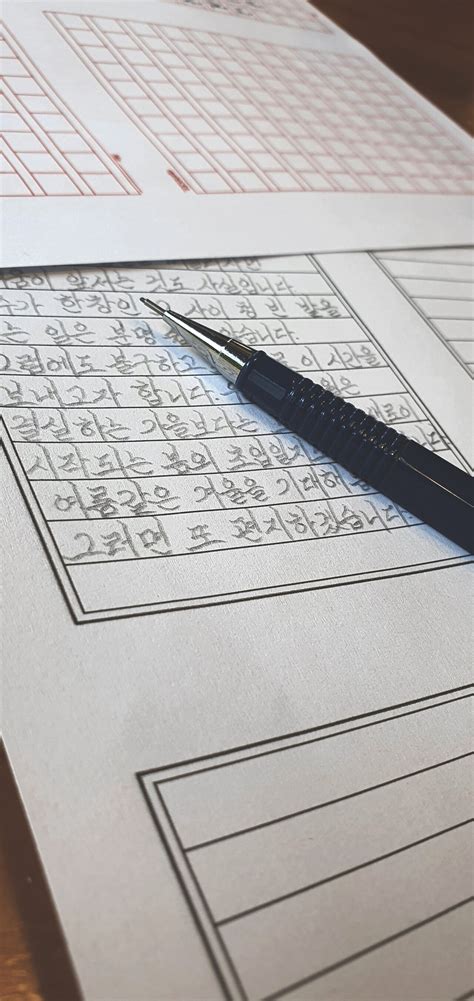 앞서는 것도 사실입니다
한창인 사이 텅 빈 밭을
는 일은 분명
그럼에도 불구하고 이 시간을
보내고자 합니다.
결실하는 가을보다는
시작되는 봄의 초입일지
여름같은 겨울을 기대해
그러면 또 편지하겠습니다